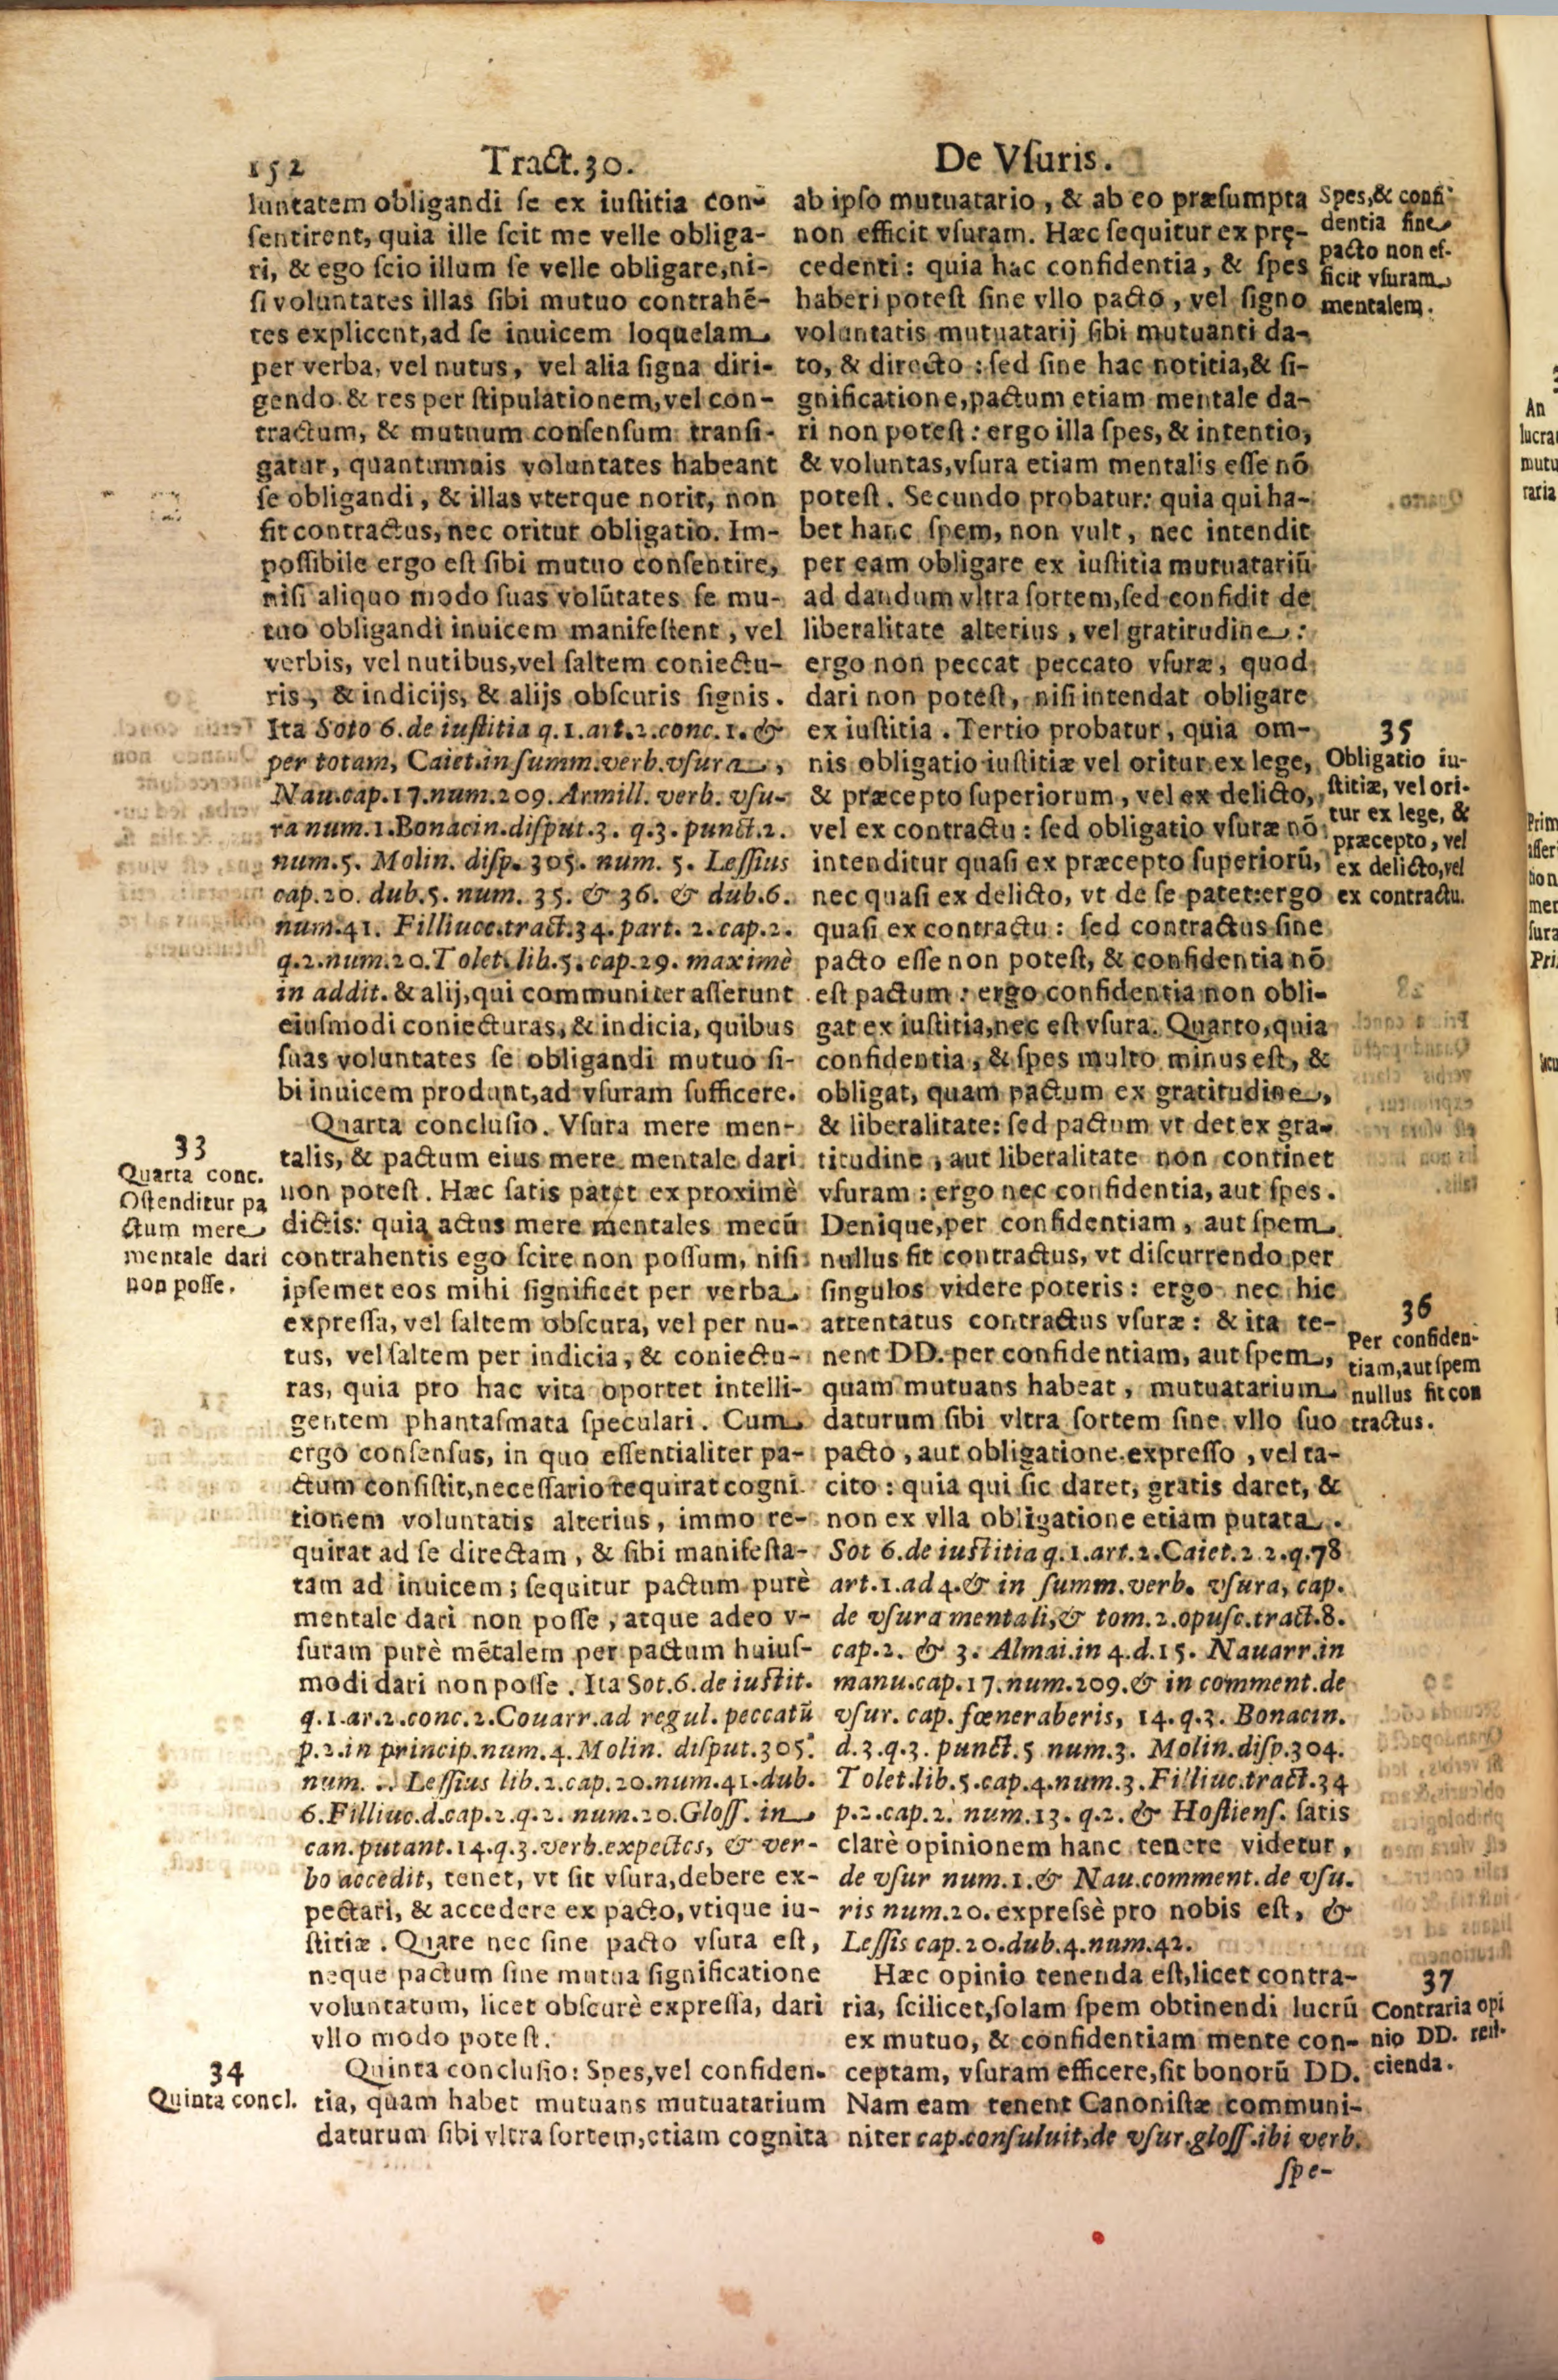 152 Tract. 30. De Vſuris.
luntatem obligandi ſe ex iuſtitia con-
ſentirent, quia ille ſcit me velle obliga-
ri, & ego ſcio illum ſe velle obligare, ni-
ſi voluntates illas ſibi mutuo contrahē-
tes explicent, ad ſe inuicem loquelam
per verba, vel nutus, vel alia ſigna diri-
gendo. & res per ſtipulationem, vel con-
tractum, & mutuum conſenſum tranſi-
gatur, quantumuis voluntates habeant
ſe obligandi, & illas vterque norit, non
fit contractus, nec oritur obligatio. Im-
poſſibile ergo eſt ſibi mutuo conſentire,
niſi aliquo modo ſuas volūtates ſe mu-
tuo obligandi inuicem manifeſtent, vel
verbis, vel nutibus, vel ſaltem coniectu-
ris, & indicijs, & alijs obſcuris ſignis.
Ita Soto 6. de iuſtitia q. 1. art. 2. conc. 1. &
per totam, Caiet. in ſumm. verb. vſura,
Nau. cap. 17. num. 209. Armill. verb. vſu-
ra num. 1. Bonacin. diſput. 3. q. 3. punct. 2.
num. 5. Molin. diſp. 305. num. 5. Leſſius
cap. 20. dub. 5. num. 35. & 36. & dub. 6.
num. 41. Filliucc. tract. 34. part. 2. cap. 2.
q. 2. num. 20. Tolet. lib. 5. cap. 29. maximè
in addit. & alij, qui communiter aſſerunt
eiuſmodi coniecturas, & indicia, quibus
ſuas voluntates ſe obligandi mutuo ſi-
bi inuicem produnt, ad vſuram ſufficere.
Quarta concluſio. Vſura mere men-
talis, & pactum eius mere mentale dari
non poteſt. Hæc ſatis patet ex proximè
dictis: quia actus mere mentales mecū
contrahentis ego ſcire non poſſum, niſi
ipſemet eos mihi ſignificet per verba
expreſſa, vel ſaltem obſcura, vel per nu-
tus, vel ſaltem per indicia, & coniectu-
ras, quia pro hac vita oportet intelli-
gentem phantaſmata ſpeculari. Cum
ergo conſenſus, in quo eſſentialiter pa-
ctum conſiſtit, neceſſario requirat cogni
tionem voluntatis alterius, immo re-
quirat ad ſe directam, & ſibi manifeſta-
tam ad inuicem; ſequitur pactum purè
mentale dari non poſſe, atque adeo v-
ſuram purè mētalem per pactum huiuſ-
modi dari non poſſe. Ita Sot. 6. de iuſtit.
q. 1. ar. 2. conc. 2. Couarr. ad regul. peccatū
p. 2. in princip. num. 4. Molin. diſput. 305.
num. Leſſius lib. 2. cap. 20. num. 41. dub.
6. Filliuc. d. cap. 2. q. 2. num. 20. Gloſſ. in
can. putant. 14. q. 3. verb. expectes, & ver-
bo accedit, tenet, vt ſit vſura, debere ex-
pectari, & accedere ex pacto, vtique iu-
ſtitiæ. Quare nec ſine pacto vſura eſt,
neque pactum ſine mutua ſignificatione
voluntatum, licet obſcurè expreſſa, dari
vllo modo poteſt.
Quinta concluſio: Spes, vel confiden-
tia, quam habet mutuans mutuatarium
daturum ſibi vltra ſortem, etiam cognita
33
Quarta conc.
Oſtenditur pa
ctum mere
mentale dari
non poſſe.
34
Quinta concl.
ab ipſo mutuatario, & ab eo præſumpta
non efficit vſuram. Hæc ſequitur ex prę-
cedenti: quia hac confidentia, & ſpes
haberi poteſt ſine vllo pacto, vel ſigno
voluntatis mutuatarij ſibi mutuanti da-
to, & directo: ſed ſine hac notitia, & ſi-
gnificatione, pactum etiam mentale da-
ri non poteſt: ergo illa ſpes, & intentio,
& voluntas, vſura etiam mentalis eſſe nō
poteſt. Secundo probatur: quia qui ha-
bet hanc ſpem, non vult, nec intendit
per eam obligare ex iuſtitia mutuatariū
ad dandum vltra ſortem, ſed confidit de
liberalitate alterius, vel gratitudine:
ergo non peccat peccato vſuræ, quod
dari non poteſt, niſi intendat obligare
ex iuſtitia. Tertio probatur, quia om-
nis obligatio iuſtitiæ vel oritur ex lege,
& præcepto ſuperiorum, vel ex delicto,
vel ex contractu: ſed obligatio vſuræ nō
intenditur quaſi ex præcepto ſuperiorū,
nec quaſi ex delicto, vt de ſe patet: ergo
quaſi ex contractu: ſed contractus ſine
pacto eſſe non poteſt, & confidentia nō
eſt pactum: ergo confidentia non obli-
gat ex iuſtitia, nec eſt vſura. Quarto, quia
confidentia, & ſpes multo minus eſt, &
obligat, quam pactum ex gratitudine,
& liberalitate: ſed pactum vt det ex gra-
titudine, aut liberalitate non continet
vſuram: ergo nec confidentia, aut ſpes.
Denique, per confidentiam, aut ſpem
nullus fit contractus, vt diſcurrendo per
ſingulos videre poteris: ergo nec hic
attentatus contractus vſuræ: & ita te-
nent DD. per confidentiam, aut ſpem,
quam mutuans habeat, mutuatarium
daturum ſibi vltra ſortem ſine vllo ſuo
pacto, aut obligatione expreſſo, vel ta-
cito: quia qui ſic daret, gratis daret, &
non ex vlla obligatione etiam putata.
Sot 6. de iuſtitia q. 1. art. 2. Caiet. 2. 2. q. 78
art. 1. ad 4. & in ſumm. verb. vſura, cap.
de vſura mentali, & tom. 2. opuſc. tract. 8.
cap. 2. & 3. Almai. in 4. d. 15. Nauarr. in
manu. cap. 17. num. 209. & in comment. de
vſur. cap. fœneraberis, 14. q. 3. Bonacin.
d. 3. q. 3. punct. 5 num. 3. Molin. diſp. 304.
Tolet. lib. 5. cap. 4. num. 3. Filliuc. tract. 34
p. 2. cap. 2. num. 13. q. 2. & Hoſtienſ. ſatis
clarè opinionem hanc tenere videtur,
de vſur num. 1. & Nau. comment. de vſu-
ris num. 20. expreſsè pro nobis eſt, &
Leſſis cap. 20. dub. 4. num. 42.
Hæc opinio tenenda eſt, licet contra-
ria, ſcilicet, ſolam ſpem obtinendi lucrū
ex mutuo, & confidentiam mente con-
ceptam, vſuram efficere, ſit bonorū DD.
Nam eam tenent Canoniſtæ communi-
niter cap. conſuluit, de vſur. gloſſ. ibi verb.
ſpe-
Spes, & confi-
dentia ſine
pacto non ef-
ficit vſuram
mentalem.
35
Obligatio iu-
ſtitiæ, vel ori-
tur ex lege, &
præcepto, vel
ex delicto, vel
ex contractu.
36
Per confiden-
tiam, aut ſpem
nullus fit con
tractus.
37
Contraria opi
nio DD. reii-
cienda.
An
lucra
mutu
raria
Prim
tion
Pri.